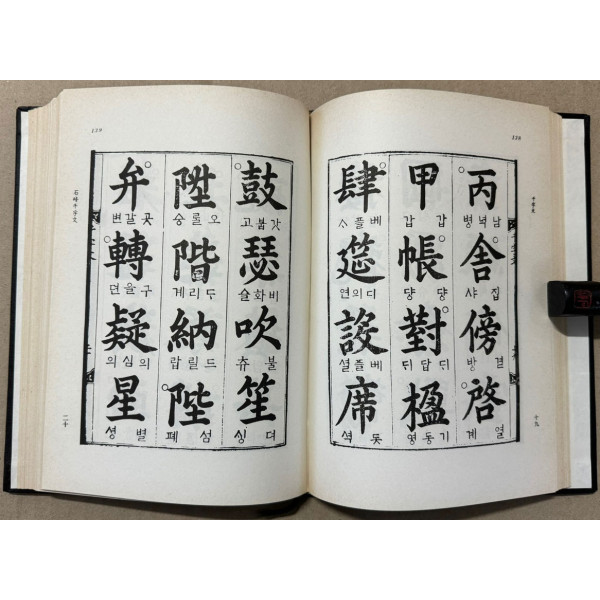 138
千字文
丙
남녁병
舍
집샤
傍
결방
啓
열계
十九
甲
갑갑
帳
댱댱
對
ᄃᆡ답ᄃᆡ
楹
기동영
肆
베플ᄉᆞ
筵
디의연
設
베플셜
席
못셕
139
鼓
갓붑고
瑟
비화슬
吹
불츄
笙
뎌싱
陞
오ᄅᆞᆯ승
階
ᄃᆞ리계
納
드릴랍
陛
섬폐
弁
곳갈변
轉
구을뎐
疑
의심의
星
별셩
石峰千字文
二十